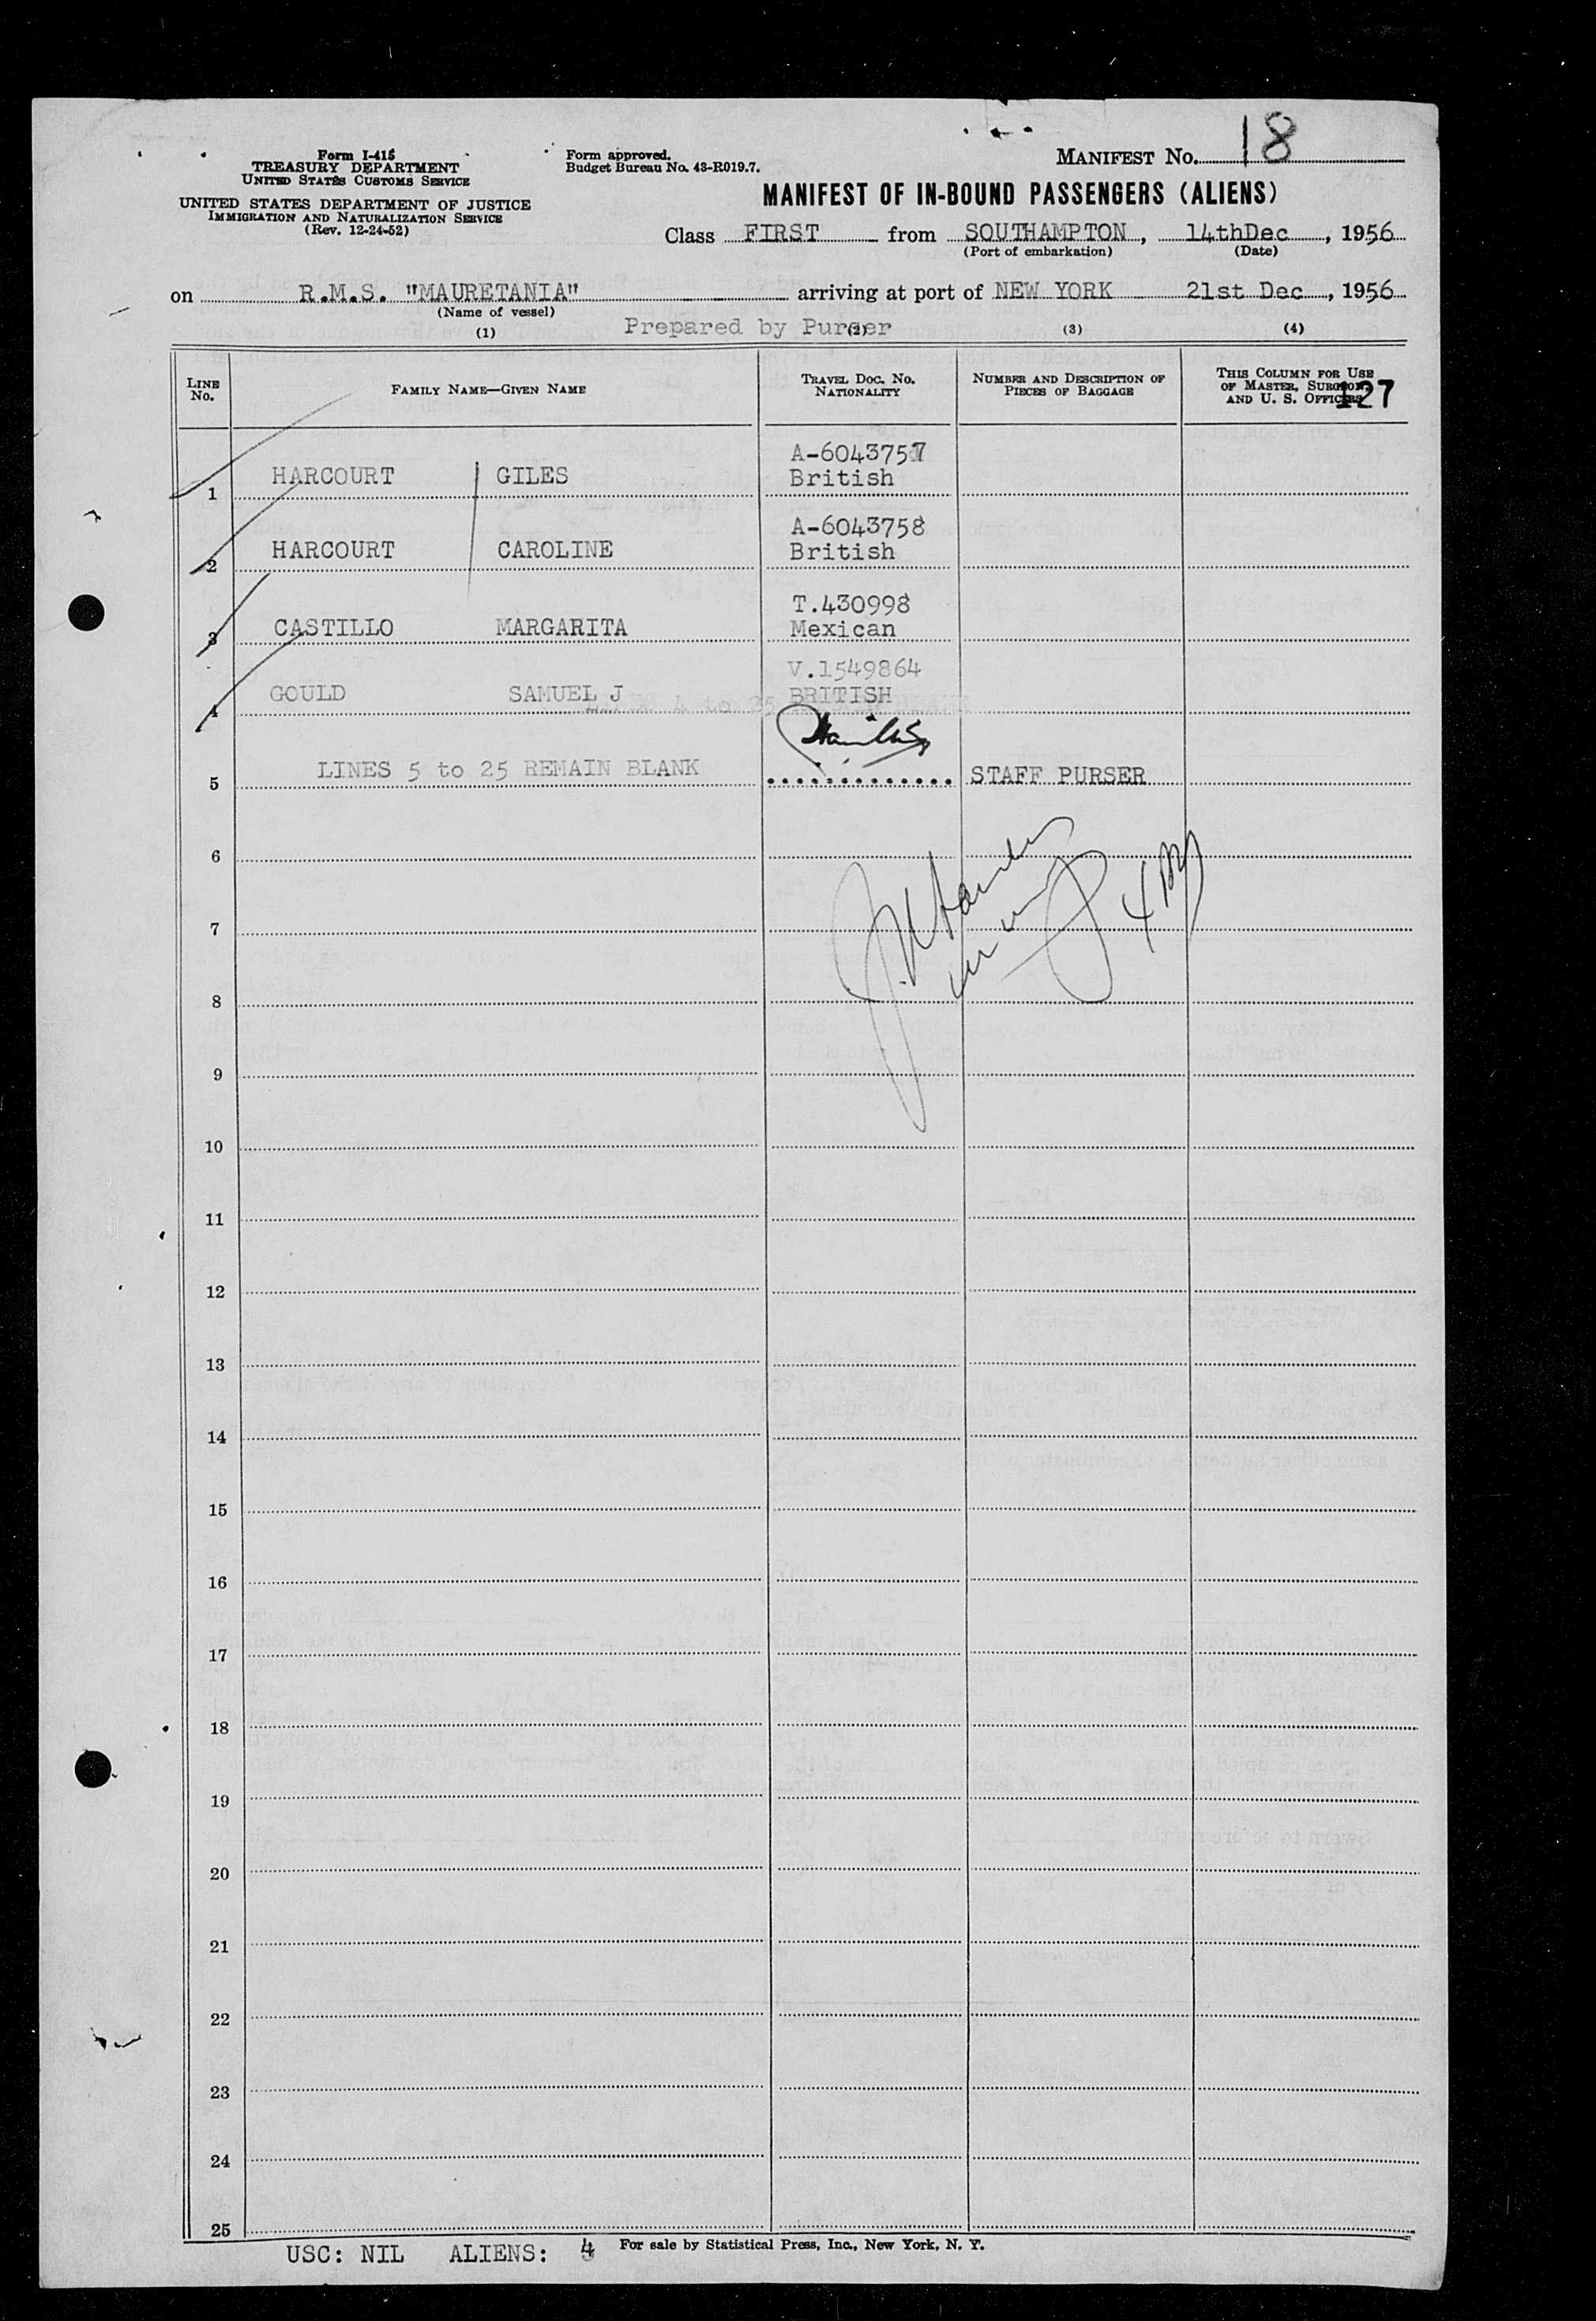 Form I-415
TREASURY DEPARTMENT
UNITED STATES CUSTOMS SERVICE
UNITED STATES DEPARTMENT OF JUSTICE
IMMIGRATION AND NATURALIZATION SERVICE
(Rev. 12-24-52)
Form approved.
Budget Bureau No. 43-R019.7.
MANIFEST NO. 18
MANIFEST OF IN-BOUND PASSENGERS (ALIENS)
Class FIRST from SOUTHAMPTON, 14thDec, 1956
(Port of embarkation) (Date)
on R.M.S. "MAURETANIA" arriving at port of NEW YORK 21st Dec, 1956
(Name of vessel)
(1) Prepared by Purser (2) (3) (4)
LINE NO.
FAMILY NAME—GIVEN NAME
TRAVEL DOC. NO.
NATIONALITY
NUMBER AND DESCRIPTION OF
PIECES OF BAGGAGE
THIS COLUMN FOR USE
OF MASTER, SURGEON,
AND U. S. OFFICERS
127
A-6043757
1 HARCOURT GILES British
A-6043758
2 HARCOURT CAROLINE British
T.430998
3 CASTILLO MARGARITA Mexican
V.1549864
4 GOULD SAMUEL J BRITISH
5 LINES 5 to 25 REMAIN BLANK STAFF PURSER
6
7
8
9
10
11
12
13
14
15
16
17
18
19
20
21
22
23
24
25
USC: NIL ALIENS: 4 For sale by Statistical Press, Inc., New York, N. Y.